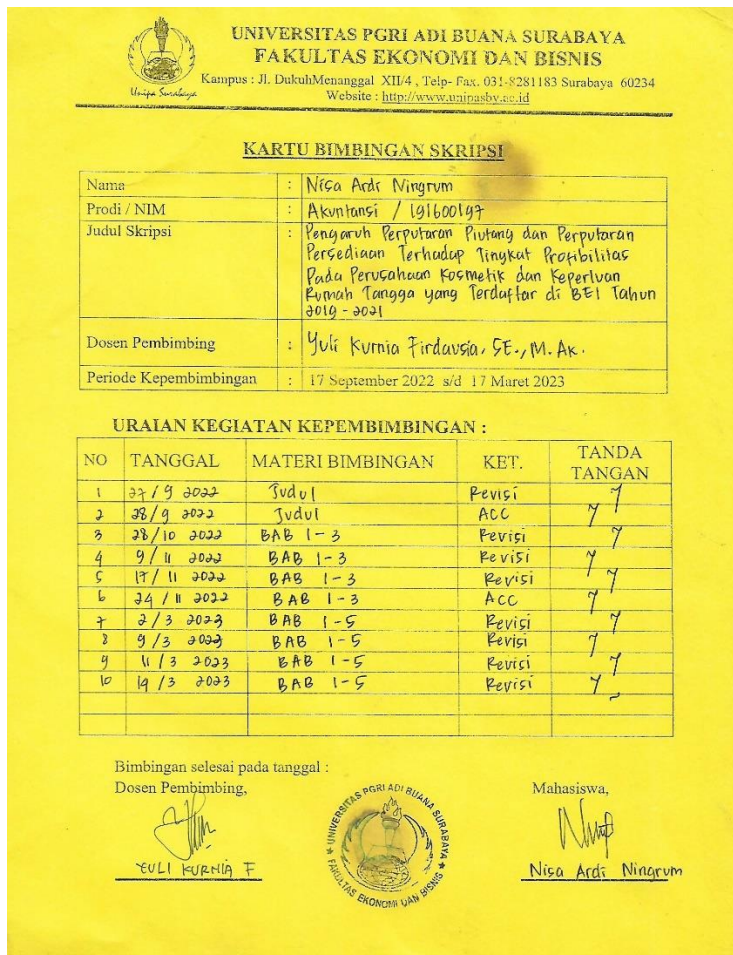 UNIVERSITAS PGRI ADI BUANA SURABAYA
FAKULTAS EKONOMI DAN BISNIS
Kampus : Jl. DukuhMenanggal XII/4 , Telp- Fax. 031-8281183 Surabaya 60234
Website : http://www.unipasby.ac.id
Unipa Surabaya
KARTU BIMBINGAN SKRIPSI
Nama : Nisa Ardi Ningrum
Prodi / NIM : Akuntansi / 191600197
Judul Skripsi : Pengaruh Perputaran Piutang dan Perputaran
Persediaan Terhadap Tingkat Profibilitas
Pada Perusahaan Kosmetik dan Keperluan
Rumah Tangga yang Terdaftar di BEI Tahun
2019 - 2021
Dosen Pembimbing : Yuli Kurnia Firdausia, SE., M. Ak.
Periode Kepembimbingan : 17 September 2022 s/d 17 Maret 2023
URAIAN KEGIATAN KEPEMBIMBINGAN :
NO TANGGAL MATERI BIMBINGAN KET. TANDA TANGAN
1 27/9 2022 Judul Revisi
2 28/9 2022 Judul ACC
3 28/10 2022 BAB 1 - 3 Revisi
4 9/11 2022 BAB 1 - 3 Revisi
5 17/11 2022 BAB 1 - 3 Revisi
6 24/11 2022 BAB 1 - 3 ACC
7 2/3 2023 BAB 1 - 5 Revisi
8 9/3 2023 BAB 1 - 5 Revisi
9 11/3 2023 BAB 1 - 5 Revisi
10 14/3 2023 BAB 1 - 5 Revisi
Bimbingan selesai pada tanggal :
Dosen Pembimbing, Mahasiswa,
UNIVERSITAS PGRI ADI BUANA SURABAYA
FAKULTAS EKONOMI DAN BISNIS
YULI KURNIA F Nisa Ardi Ningrum